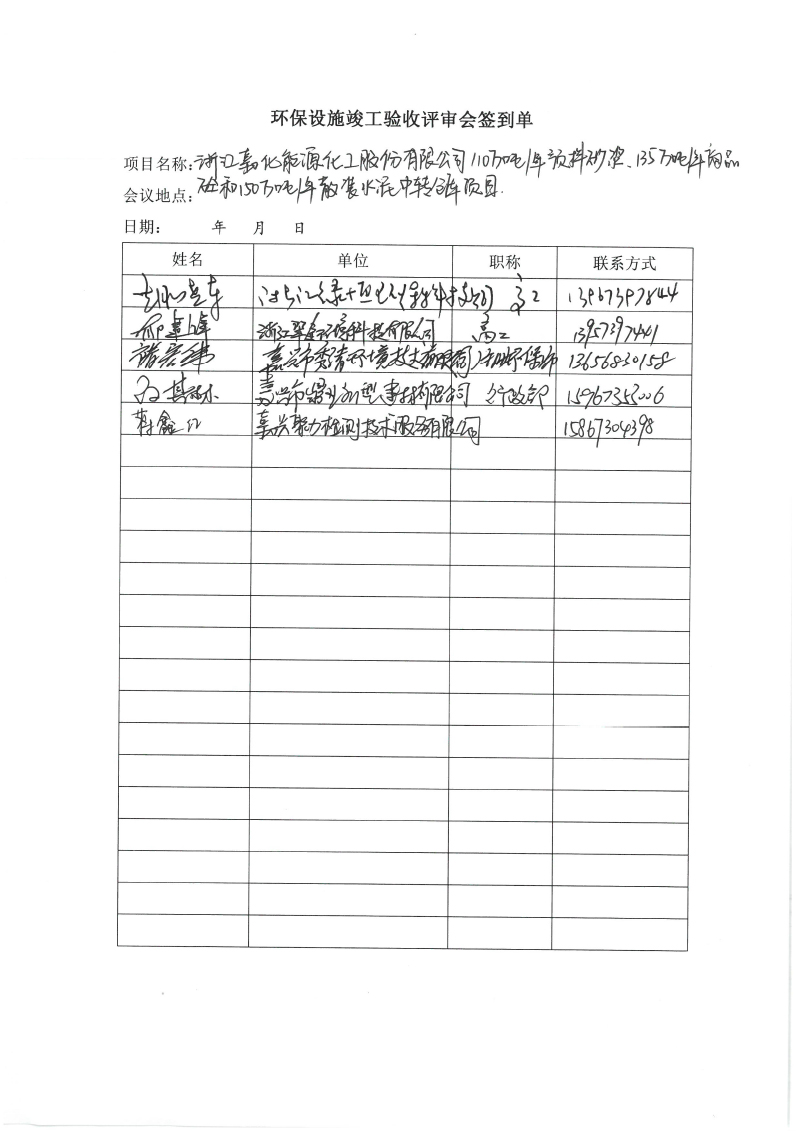 环保设施竣工验收评审会签到单
项目名称:浙江嘉化能源化工股份有限公司110万吨/年预拌砂浆、135万吨/年商品
会议地点:砼和150万吨/年散装水泥中转仓库项目.
日期: 年 月 日
姓名 单位 职称 联系方式
高工 13967397844
浙江翠金环境科技有限公司 高工 13957397441
嘉兴市秀清环境技术有限公司 13656830158
嘉兴市 新型 有限公司 行政部 15967353006
鑫 嘉兴聚力检测技术服务有限公司 15867304398